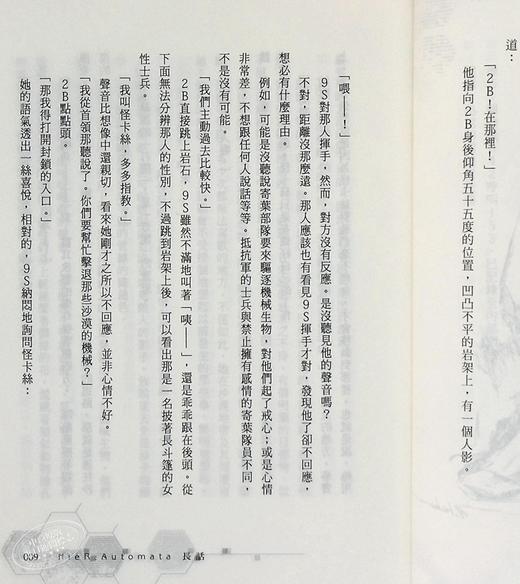 道：
「２Ｂ！在那裡！」
他指向２Ｂ身後仰角五十五度的位置，凹凸不平的岩架上，有一個人影。
「喂——！」
９Ｓ對那人揮手，然而，對方沒有反應。是沒聽見他的聲音嗎？
不對，距離沒那麼遠。那人應該也有看見９Ｓ揮手才對，發現他了卻不回應，
想必有什麼理由。
例如，可能是沒聽說寄葉部隊要來驅逐機械生物，對他們起了戒心；或是心情
非常差，不想跟任何人說話等等。抵抗軍的士兵與禁止擁有感情的寄葉隊員不同，
不是沒有可能。
「我們主動過去比較快。」
２Ｂ直接跳上岩石，９Ｓ雖然不滿地叫著「咦——」，還是乖乖跟在後頭。從
下面無法分辨那人的性別，不過跳到岩架上後，可以看出那是一名披著長斗篷的女
性士兵。
「我叫怪卡絲，多多指教。」
聲音比想像中還親切，看來她剛才之所以不回應，並非心情不好。
「我從首領那聽說了。你們要幫忙擊退那些沙漠的機械？」
２Ｂ點點頭。
「那我得打開封鎖的入口。」
她的語氣透出一絲喜悅，相對的，９Ｓ納悶地詢問怪卡絲：
009 NieR:Automata 長話